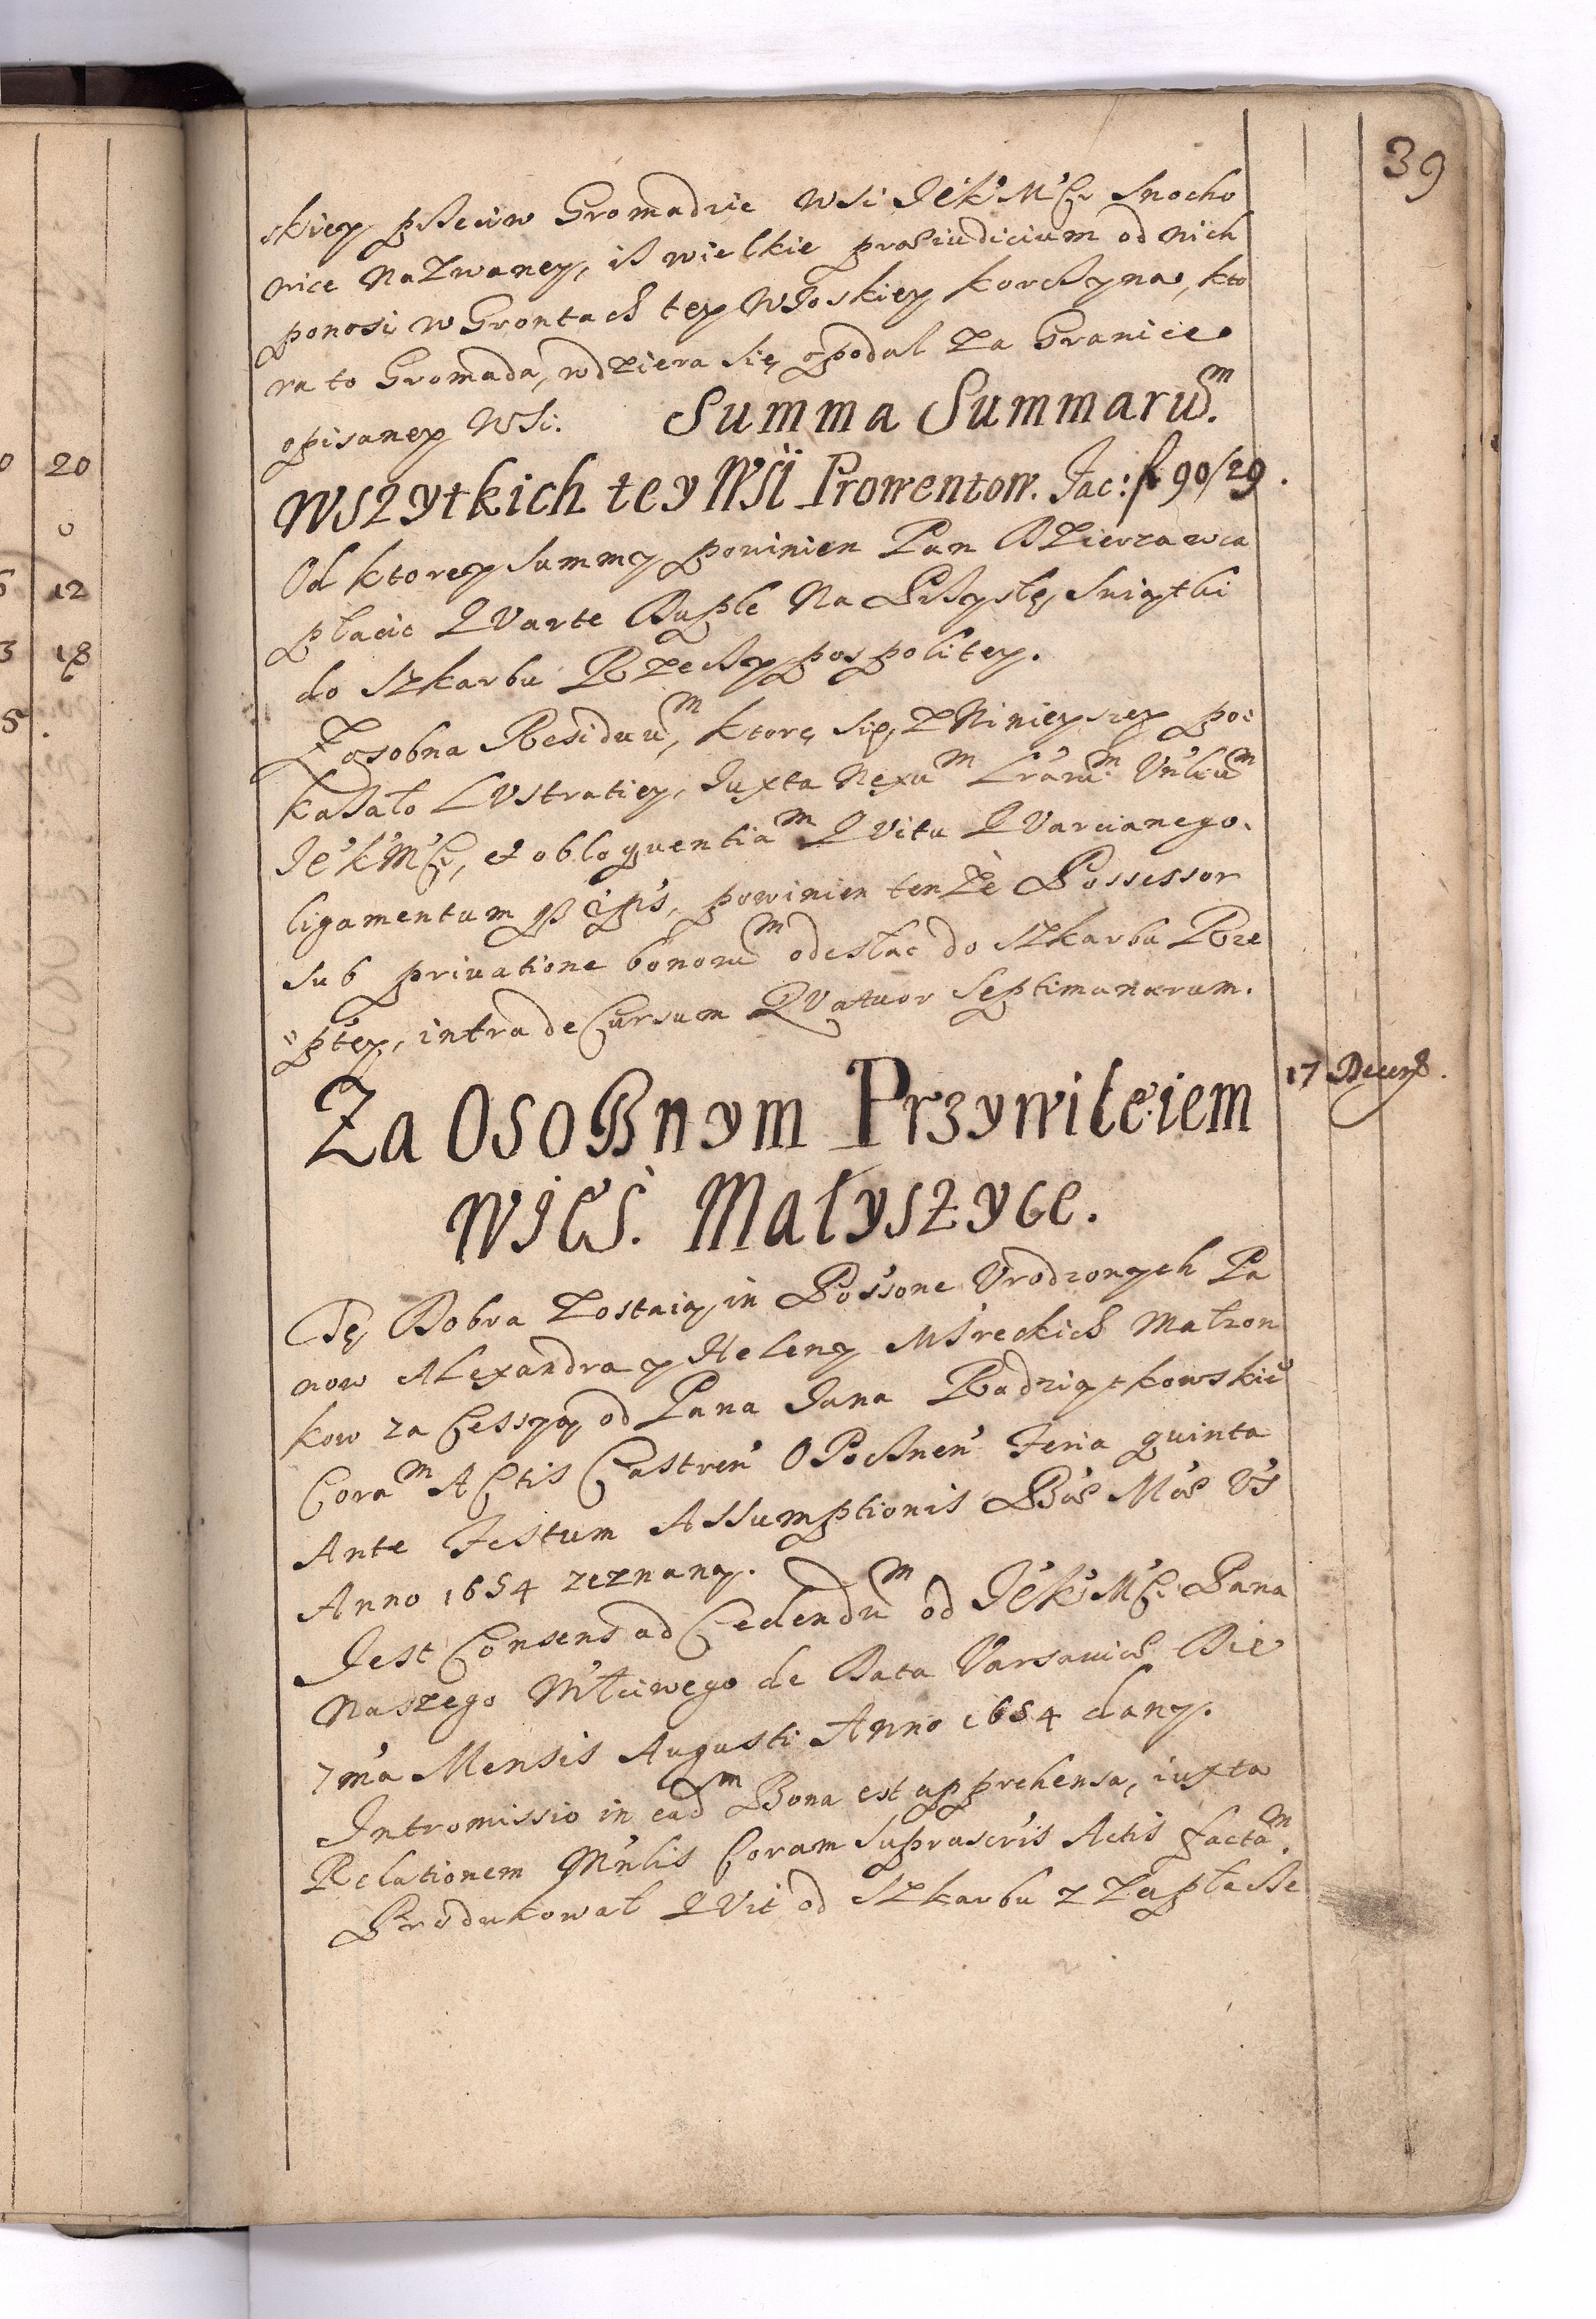 39
skiey przeciw Gromadzie wsi Je'k'M'Ci Snocho
nice Nazwaney, iż wielkie praeiudicium od nich
ponosi w Grontach tey Włoskiey korczyna, kto
ra to Gromada, wdziera się opodal za Granice
opisaney Wsi. Summa Summaru^m.
Wszytkich tey WSi Prowentow. Fac: f 90/29.
Od ktorey summy powinien Pan Dzierzawca
płacic QVarte Duple Na Przyszłe Swiątki
do Szkarbu Rzeczypospolitey.
Zosobna Residuu^m, ktore się, z Ninieyszey po:
kazało LVstratiey, Juxta Nexu^m Lraru^m Vn'liu^m
Je'k'M'Ci, et obloquentia^m QVitu QVarcianego.
ligamentum powinien tenże Possessor
sub priuatione bonoru^m odesłac do Szkarbu Rze
"p'tey, intra deCursum QVatuor Septimanarum.
17 Decemb.
Za OsoBnym Przywileiem
WIES. Małyszyce.
Te Dobra zostaią, in Pos'sone Vrodzonych Pa
now Alexandra y Heleny Msreckich Małzon
kow za Cessyą od Pana Jana Radziątkowskie^o
Cora^m ACtis Castren' OPoCznen' Feria quinta
Ante Festum Assumptionis B'ae M'ae V's
Anno 1654 zeznaną.
Jest Consens ad Cedendu^m od Je'k'M'Ci Pana
Naszego M'łciwego de Data Varsaviae Die
7m'a Mensis Augusti Anno 1654 dany.
Intromissio in ead^m Bona est apprehensa, iuxta
Relationem M'nlis Coram Suprascr'is Actis facta^m.
Produkował QVit od Szkarbu z Zapłacze